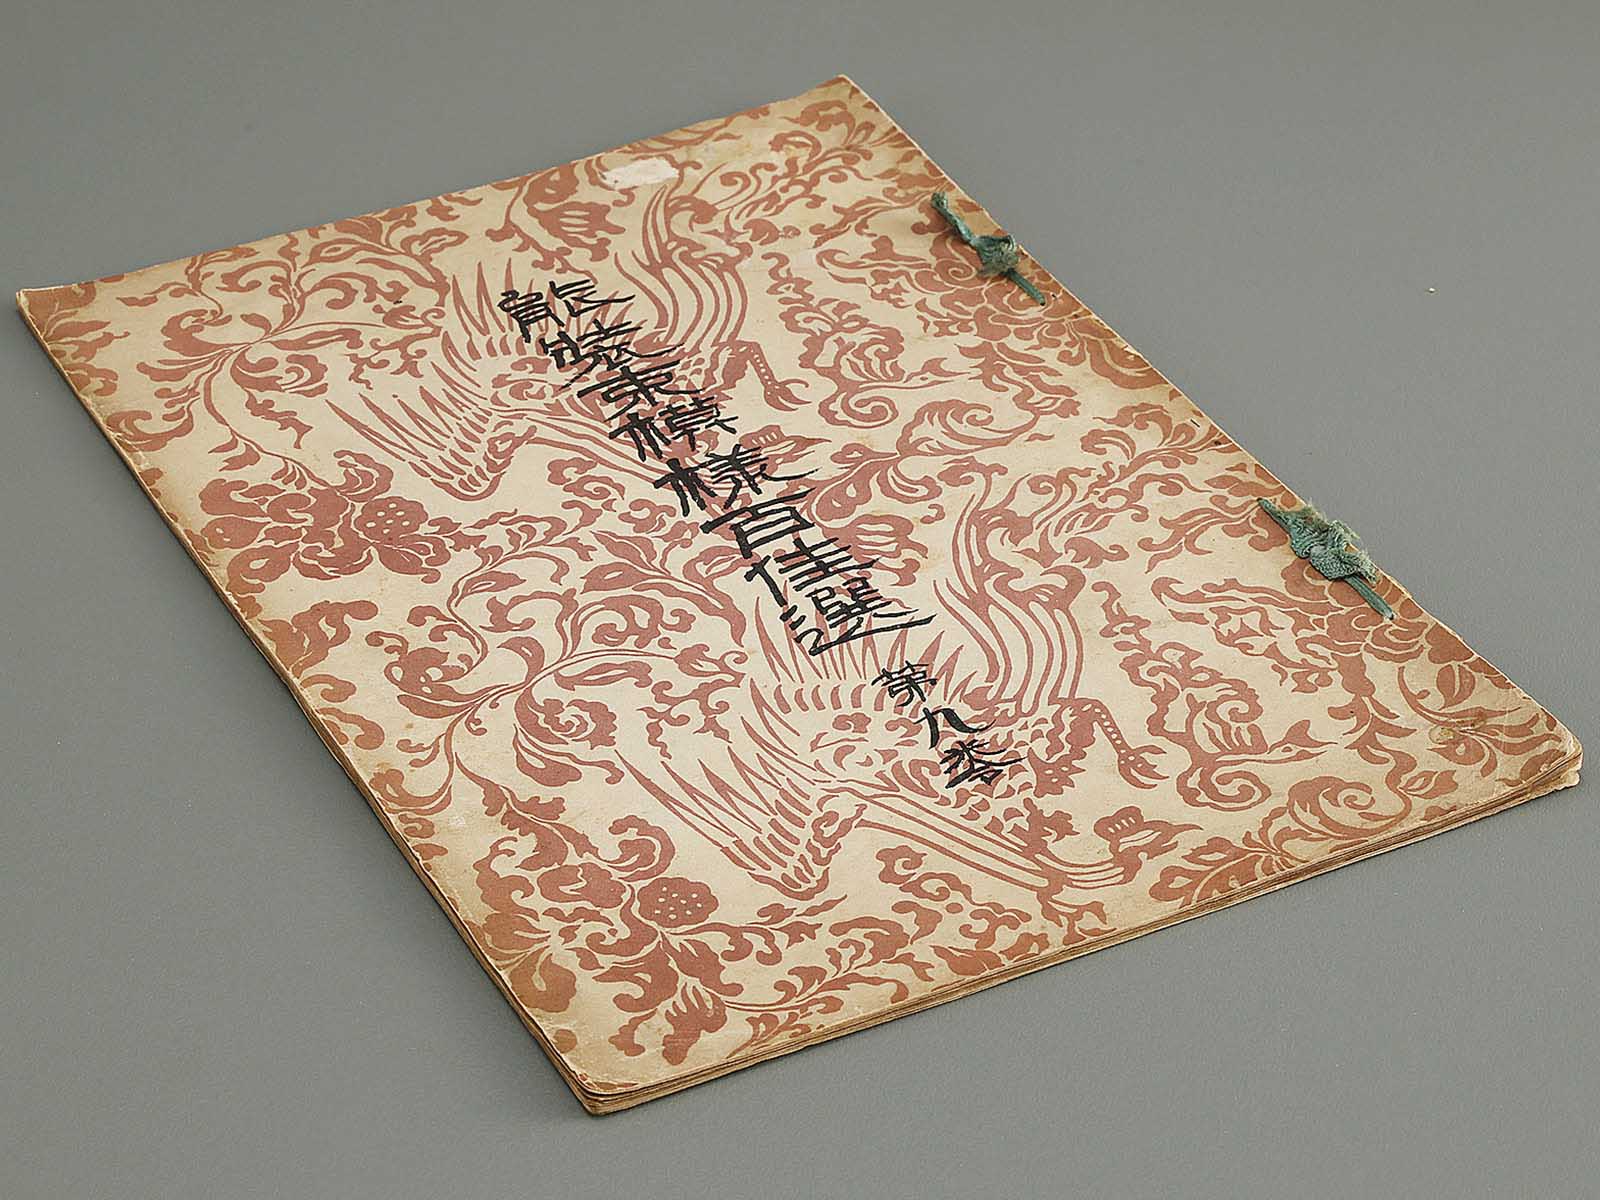 能装束模様百佳選
第九巻